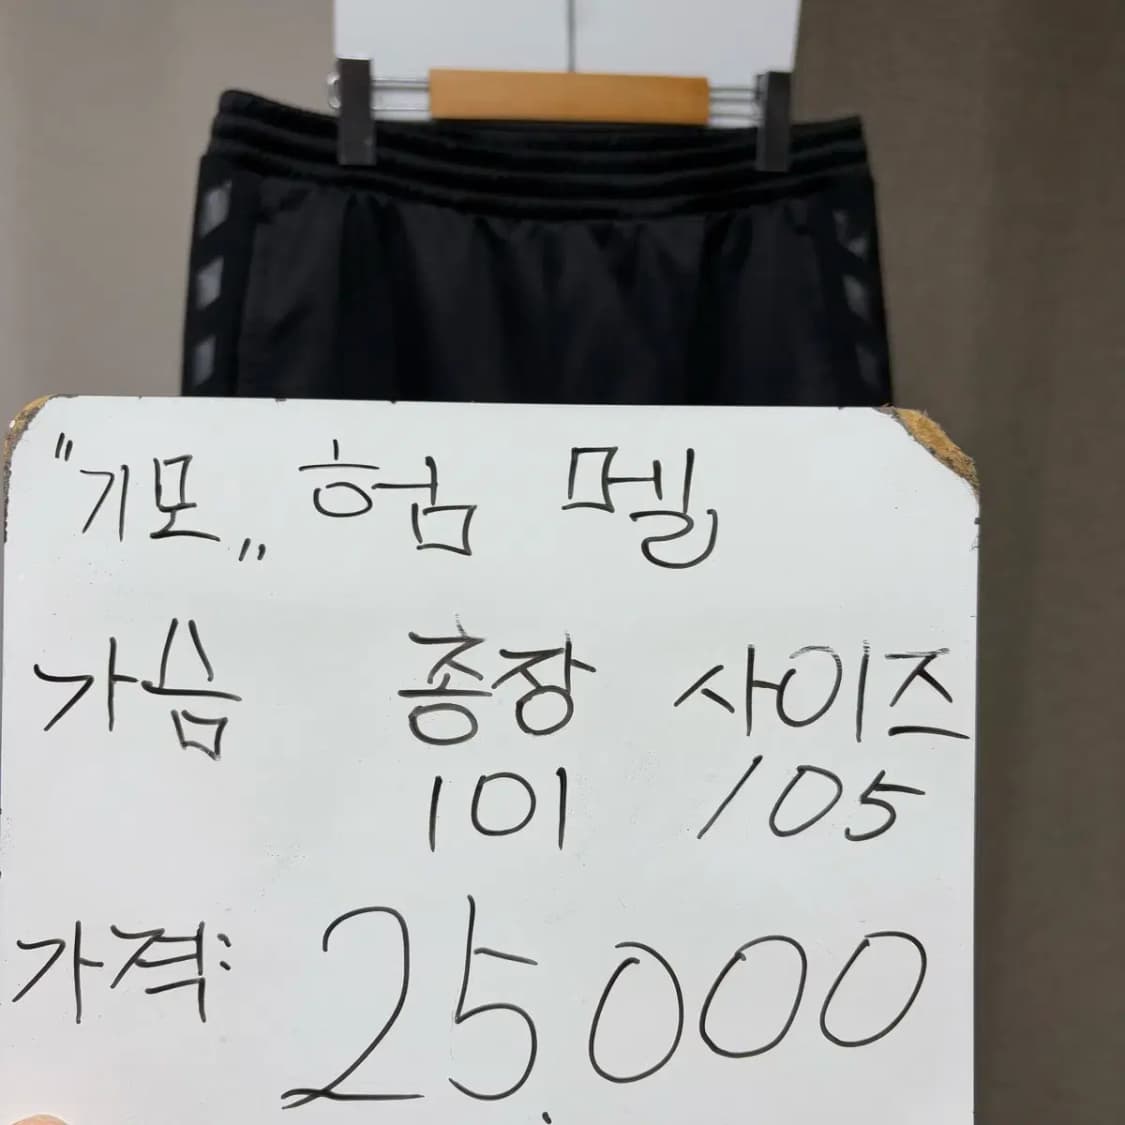 "기모" 험멜
가슴 총장 사이즈
101 105
가격: 25,000